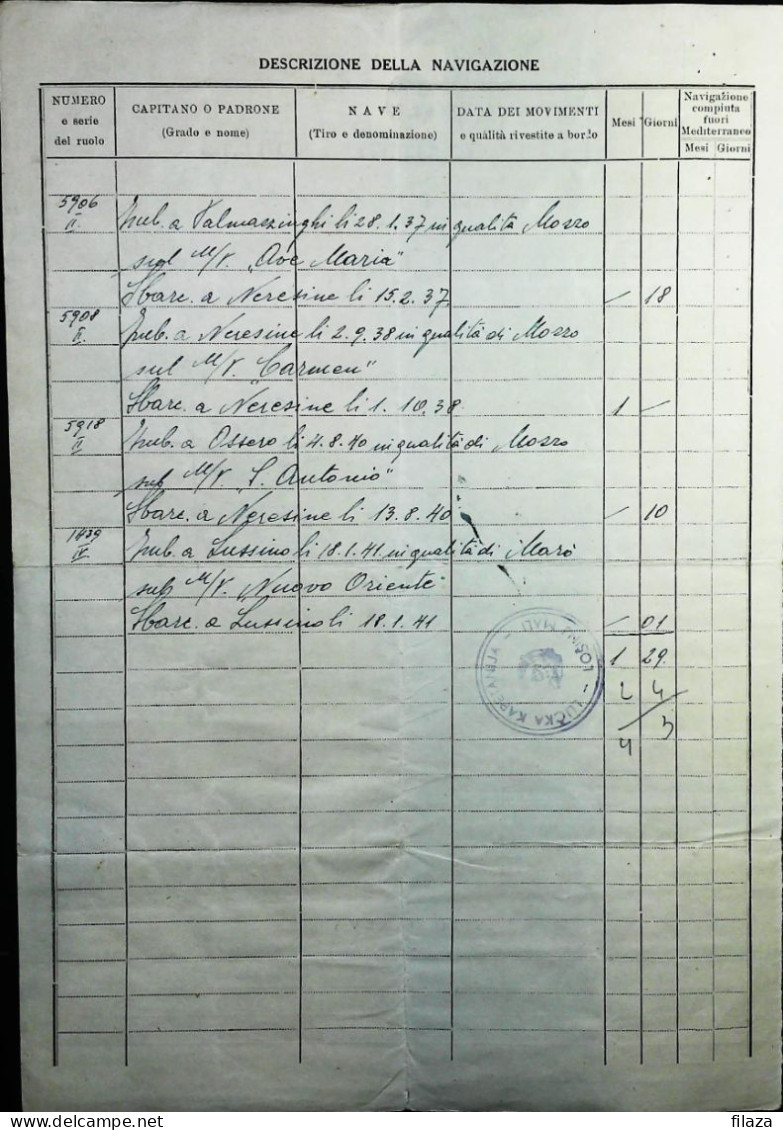 DESCRIZIONE DELLA NAVIGAZIONE
NUMERO
e serie
del ruolo
CAPITANO O PADRONE
(Grado e nome)
NAVE
(Tiro e denominazione)
DATA DEI MOVIMENTI
e qualità rivestite a bordo
Mesi
Giorni
Navigazione
compiuta
fuori
Mediterraneo
Mesi Giorni
5906
II
Imb. a Valmazzinghi li 28.1.37 in qualità Mozzo
sul M/V. "Ave Maria"
Sbarc. a Neresine li 15.2.37 / 18
5908
II
Imb. a Neresine li 2.9.38 in qualità di Mozzo
sul M/V. "Carmen"
Sbarc. a Neresine li 1.10.38 1 /
5918
II
Imb. a Ossero li 4.8.40 in qualità di Mozzo
sul M/V. "S. Antonio"
Sbarc. a Neresine li 13.8.40 / 10
1439
IV
Imb. a Lussino li 18.1.41 in qualità di Marò
sul M/V. Nuovo Oriente
Sbarc. a Lussino li 18.1.41 / 01
1 29
2 4
4 3
LUČKA KAPETANIJA - LOŠINJ MALI -
filaza
delcampe.net